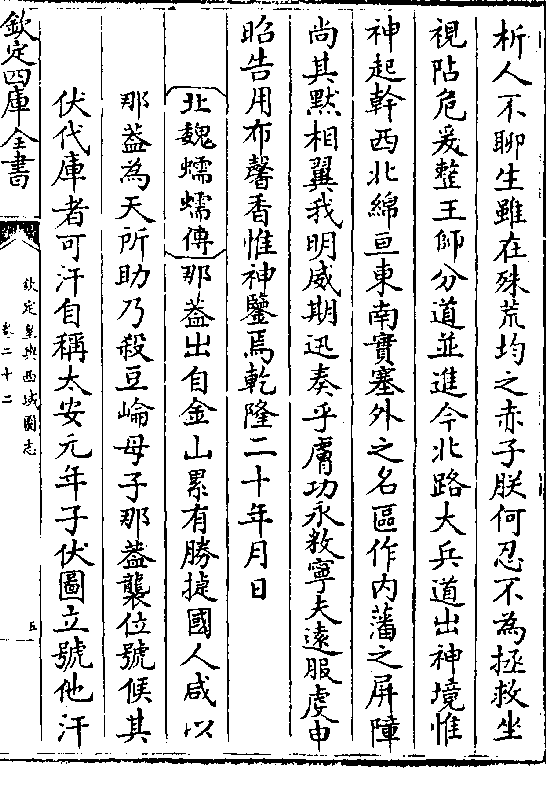 析人不聊生雖在殊荒均之赤子朕何忍不為拯救坐
視阽危爰整王師分道並進今北路大兵道出神境惟
神起幹西北綿亘東南實塞外之名區作內藩之屏障
尚其黙相翼我明威期迅奏乎膚功永敉寧夫遠服虔申
昭告用布馨香惟神鑒焉乾隆二十年月日
北魏蠕蠕傳那葢出自金山累有勝捷國人咸以
那葢為天所助乃殺豆崘母子那葢襲位號候其
伏代庫者可汗自稱太安元年子伏圖立號他汗
欽定四庫全書
欽定皇輿西域圖志
卷二十二
五